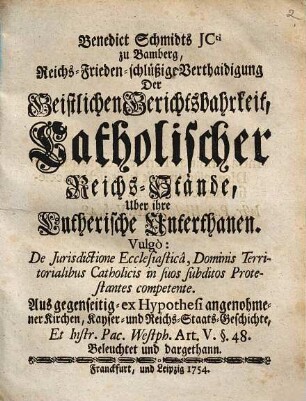 2
Benedict Schmidts JCti
zu Bamberg,
Reichs-Frieden-schlüßige Verthaidigung
Der
Geistlichen Gerichtsbahrkeit,
Catholischer
Reichs-Stände,
Uber ihre
Lutherische Unterthanen.
Vulgò:
De Jurisdictione Ecclesiasticâ, Dominis Terri-
torialibus Catholicis in suos subditos Prote-
stantes competente.
Aus gegenseitig-ex Hypothesi angenohme-
ner Kirchen, Kayser- und Reichs-Staats-Geschichte,
Et Instr. Pac. Westph. Art. V. §. 48.
Beleuchtet und dargethann.
Franckfurt, und Leipzig 1754.